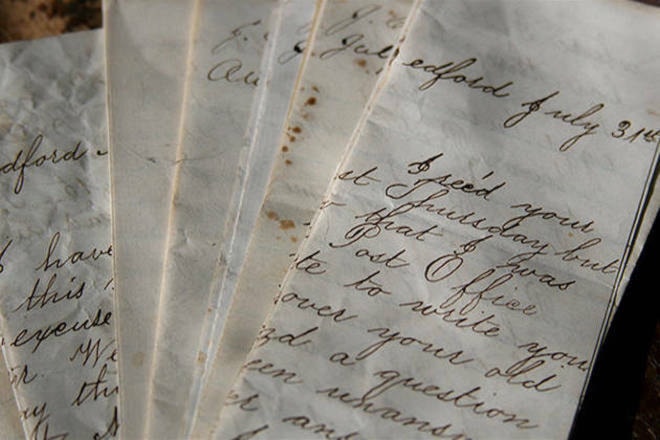 dford
have
this
excuse
r. We
ay th
Au
Jul
edford July 31st
I rec'd your
st Thursday but
that I was
Post Office
te to write you
over your old
d a question
een unans
er an